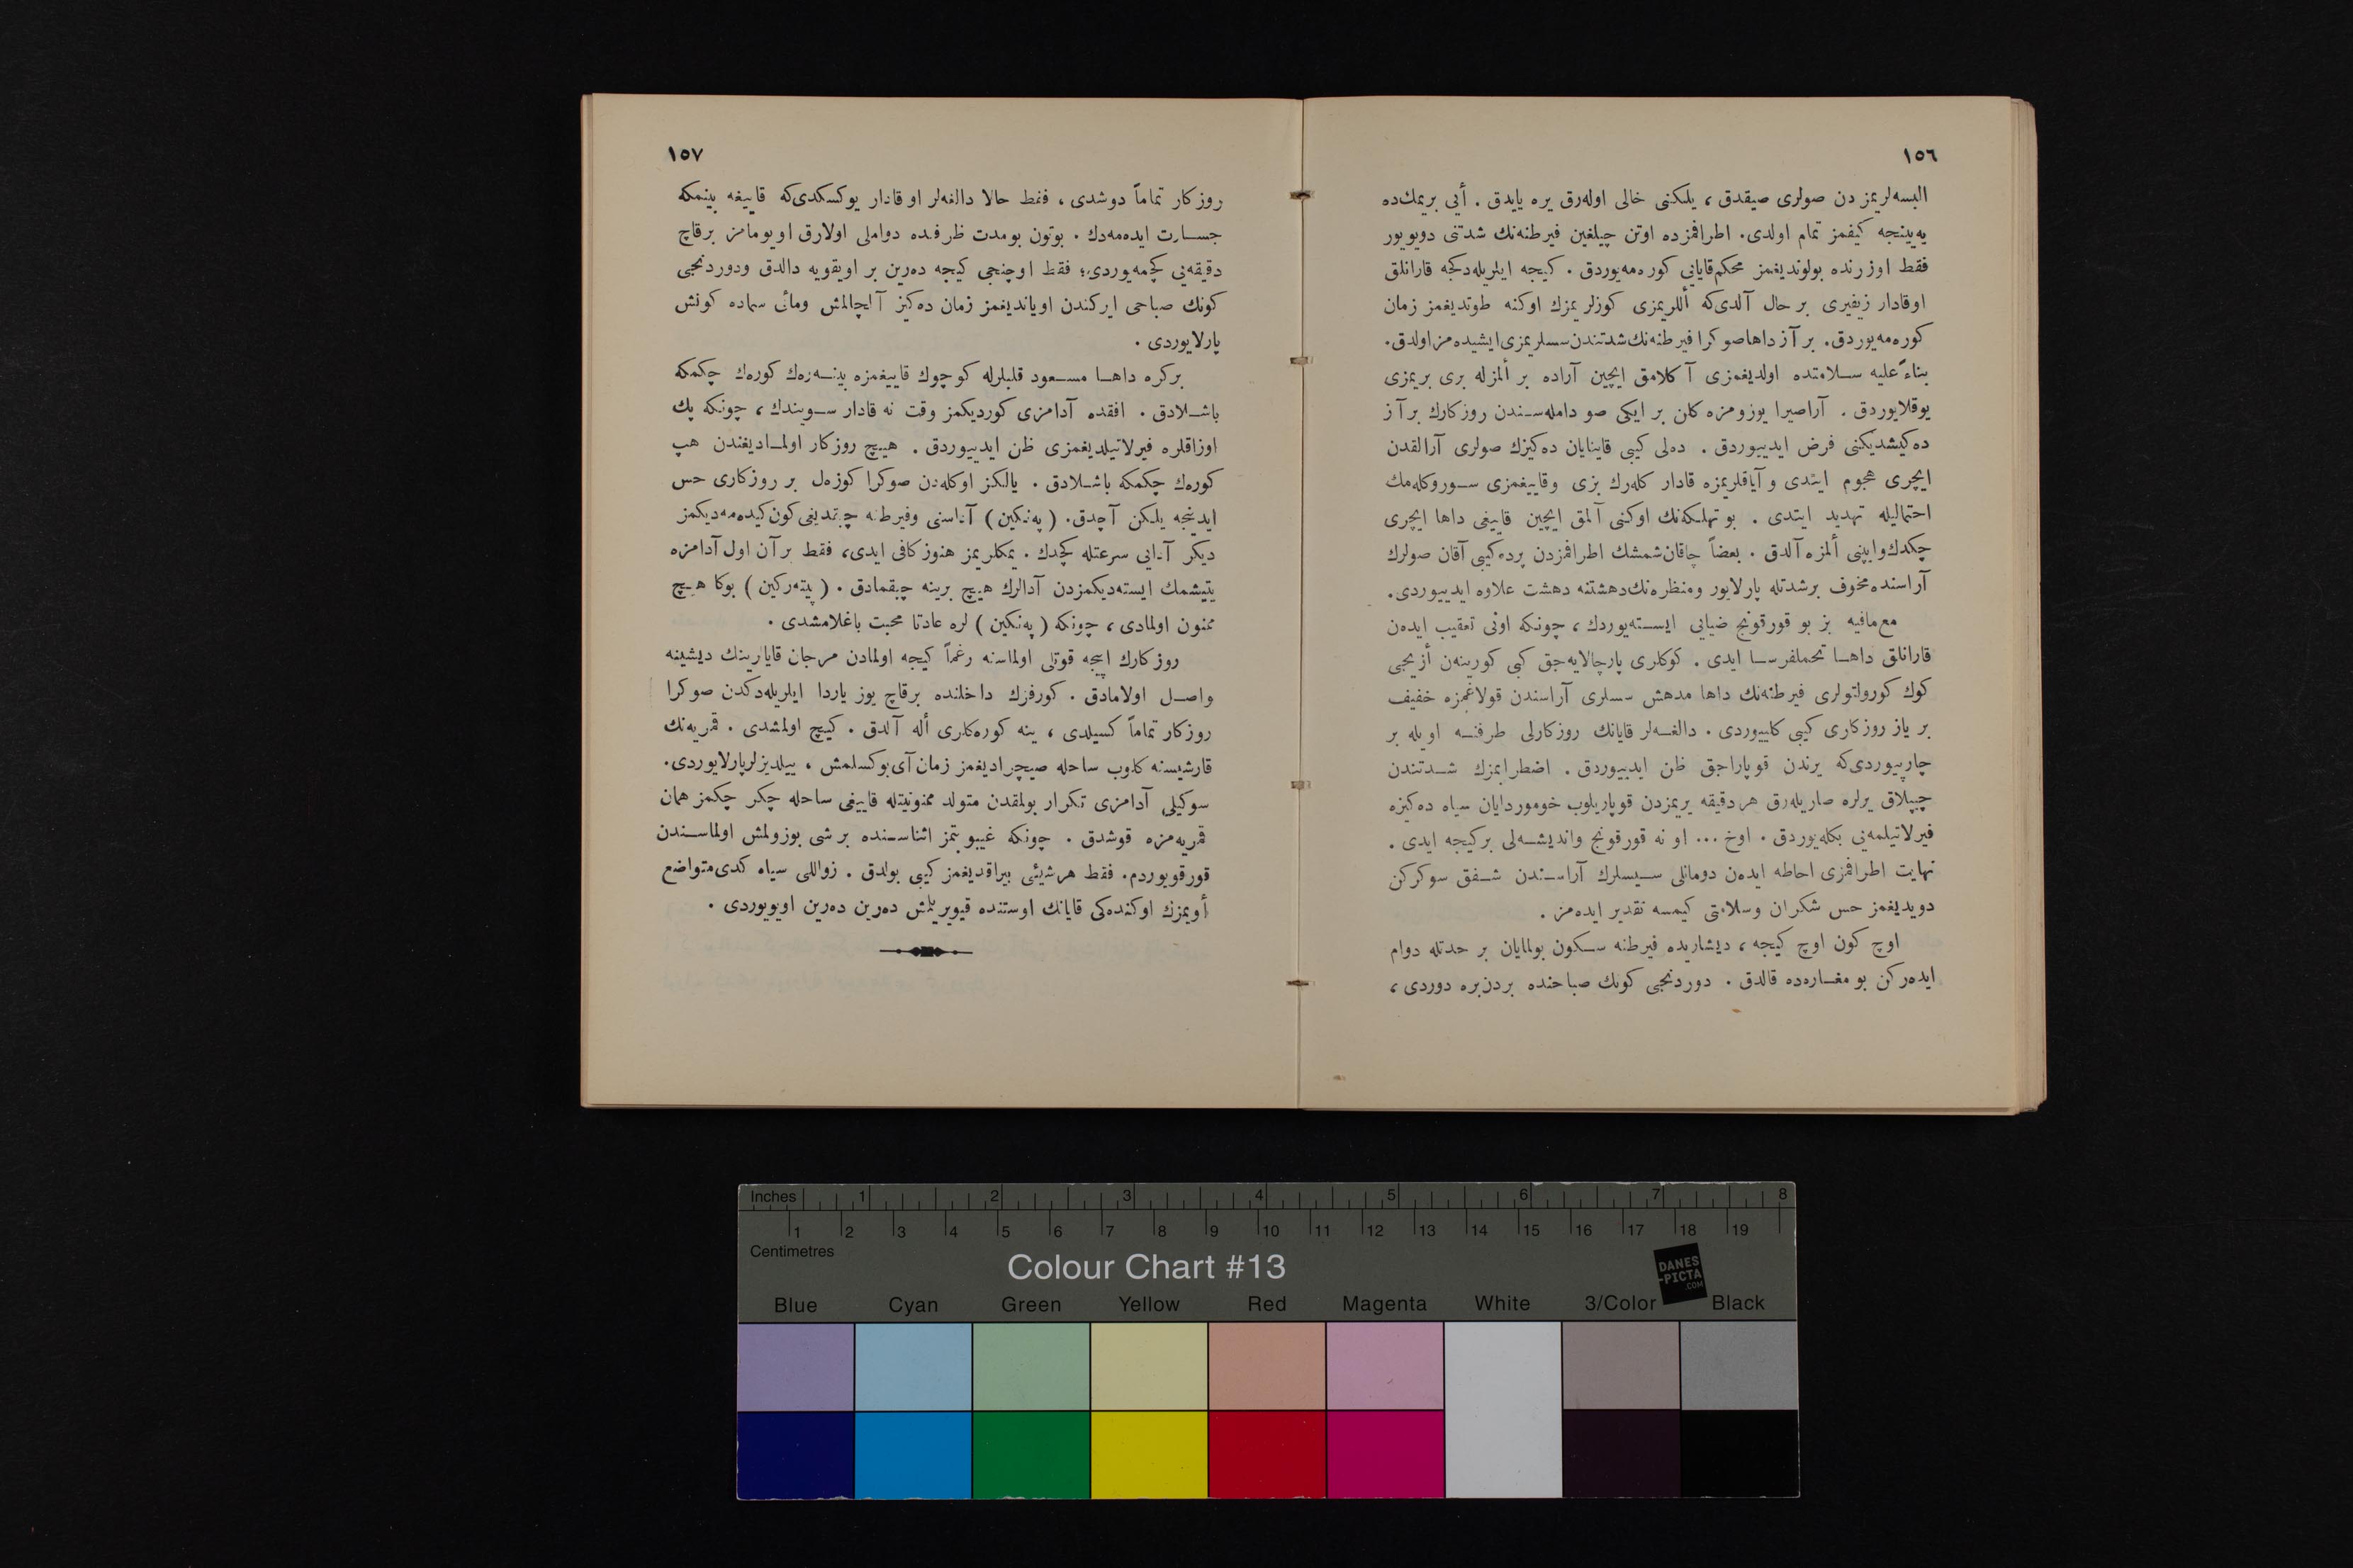 ١٥٦
البسه‌لریمز دن صولری صیقدق ، یلکنی خالی اوله‌رق یره یایدق . أیی بریمك‌ده
یه‌یینجه کیفمز تمام اولدی. اطرافمزده اوتن چیلغین فیرطنه‌نك شدتنی دویویور
فقط اوزرنده بولوندیغمز محکم‌قایایی کوره‌مه‌یوردق . کیجه ایلریله‌دکجه قارانلق
اوقادار زیفیری بر حال آلدی‌که أللریمزی کوزلریمزك اوکنه طوتدیغمز زمان
کوره‌مه‌یوردق. بر آز داها‌صوکرا فیرطنه‌نك‌شدتندن‌سسلریمزی‌ایشیده‌مز‌اولدق.
بناءً علیه سـلامتده اولدیغمزی آکلامق ایچین آراده بر ألمزله بری بریمزی
یوقلایوردق . آراصیرا یوزومزه کان بر ایکی صو دامله‌سـندن روزکارك بر آز
ده‌کیشدیکنی فرض ایدییوردق . ده‌لی کیبی قاینایان ده‌کیزك صولری آرالقدن
ایچری هجوم ایتدی و آیاقلریمزه قادار کله‌رك بزی وقاییغمزی سـوروکله‌مك
احتمالیله تهدید ایتدی . بو تهلکه‌نك اوکنی آلمق ایچین قاییغی داها ایچری
چکدك‌وایپنی ألمزه آلدق . بعضاً چاقان‌شمشك اطرافمزدن پرده‌کیبی آقان صولرك
آراسنده مخوف برشدتله پارلایور ومنظره‌نك‌دهشتنه دهشت علاوه ایدییوردی.
مع‌مافیه بز بو قورقونج ضیایی ایسـته‌یوردك ، چونکه اونی تعقیب ایده‌ن
قارانلق داهـا تحملفرسـا ایدی . کوکلری پارچالایه‌جق کبی کورینه‌ن أزیجی
کوك کورولتولری فیرطنه‌نك داها مدهش سسلری آراسندن قولاغمزه خفیف
بر یاز روزکاری کیبی کلییوردی . دالغـه‌لر قایانك روزکارلی طرفنـه اویله بر
چارپییوردی‌که یرندن قوپاراجق ظن ایدییوردق . اضطرابمزك شـدتندن
چیپلاق یرلره صاریله‌رق هر‌دقیقه یریمزدن قوپاریلوب خوموردایان سیاه ده‌کیزه
فیرلاتیلمه‌یی بکله‌یوردق . اوخ ... او نه قورقونج واندیشـه‌لی برکیجه ایدی .
نهایت اطرافمزی احاطه ایده‌ن دومانلی سـیسلرك آراسـندن شـفق سوکرکن
دویدیغمز حس شکران وسلامتی کیمسه تقدیر ایده‌مز .
اوچ کون اوچ کیجه ، دیشاریده فیرطنه سـکون بولمایان بر حدتله دوام
ایده‌رکن بو مغـاره‌ده قالدق . دوردنجی کونك صباحنده بردن‌بره دوردی ،
١٥٧
روزکار تماماً دوشدی ، فقط حالا دالغه‌لر اوقادار یوکسکدی‌که قاییغه بینمکه
جسـارت ایده‌مه‌دك . بوتون بومدت ظرفنده دواملی اولارق اویومامز برقاچ
دقیقه‌یی کچمه‌یوردی؛ فقط اوچنجی کیجه ده‌رین بر اویقویه دالدق ودوردنجی
کونك صباحی ایرکندن اویاندیغمز زمان ده‌کیز آلچالمش ومائی سماده کونش
پارلایوردی .
برکره داهـا مسـعود قلبلرله کوچوك قاییغمزه بینـه‌رك کورەك چکمکه
باشـلادق . افقده آدامزی کوردیکمز وقت نه قادار سـویندك ، چونکه پك
اوزاقلره فیرلاتیلدیغمزی ظن ایدییوردق . هییچ روزکار اولمـادیغندن هپ
کورەك چکمکه باشـلادق . یالکز اوکله‌دن صوکرا کوزه‌ل بر روزکاری حس
ایدنجه یلکن آچدق. ( په‌نکین ) آداسنی وفیرطنه چیقدیغی‌کون‌کیده‌مه‌دیکمز
دیکر آدایی سرعتله کچدك . یمکلریمز هنوز کافی ایدی، فقط بر آن اول آدامزه
یتیشمك ایسته‌دیکمزدن آدالرك هیچ برینه چیقمادق . ( پیته‌رکین ) بوکا هیچ
ممنون اولمادی ، چونکه ( په‌نکین ) لره عادتا محبت باغلامشدی .
روزکارك اپیجه قوتلی اولماسنه رغماً کیجه اولمادن مرجان قایالرینك دیشینه
واصـل اولامادق . کورفزك داخلنده برقاچ یوز یاردا ایلریله‌دکدن صوکرا
روزکار تماماً کسیلدی ، ینه کوره‌کلری أله آلدق . کیچ اولمشدی . قمریه‌نك
قارشیسنه کلوب ساحله صیچرادیغمز زمان آی‌یوکسلمش ، ییلدیزلرپارلایوردی.
سوکیلی آدامزی تکرار بولمقدن متولد ممنونیتله قاییغی ساحله چکر چکمز همان
قمریه‌مزه قوشدق . چونکه غیبوبتمز اثناسـنده بر شی بوزولمش اولماسـندن
قورقویوردم. فقط هرشیئی بیراقدیغمز کیبی بولدق . زواللی سیاه کدی متواضع
أویمزك اوکنده‌کی قایانك اوستنده قیوریلمش ده‌رین ده‌رین اویویوردی .
Inches 1 2 3 4 5 6 7 8
1 2 3 4 5 6 7 8 9 10 11 12 13 14 15 16 17 18 19
Centimetres
Colour Chart #13
DANES
-PICTA
.COM
Blue Cyan Green Yellow Red Magenta White 3/Color Black